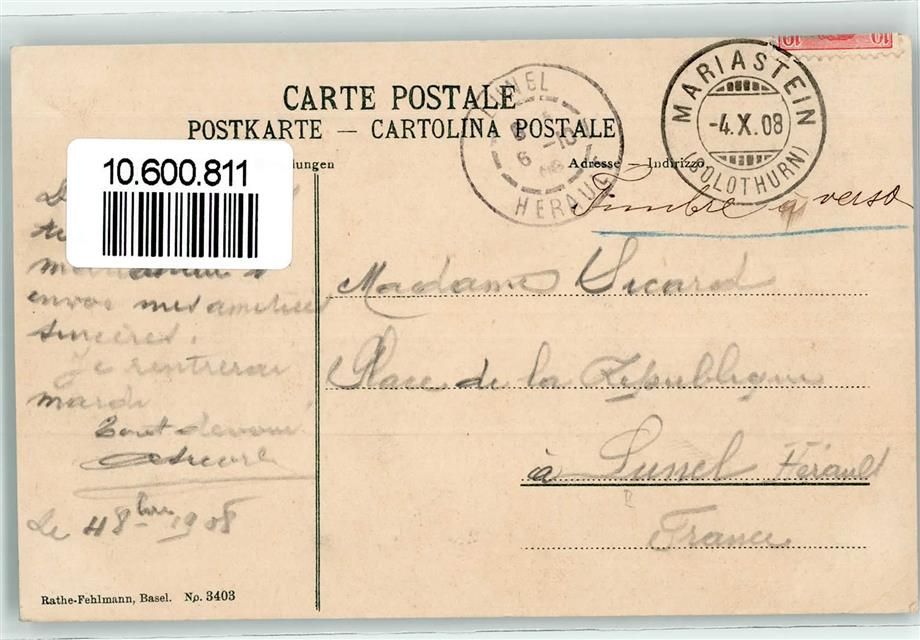 CARTE POSTALE
POSTKARTE — CARTOLINA POSTALE
Adresse — Indirizzo.
10.600.811
LUNEL
HERAULT
MARIASTEIN
-4.X.08
(SOLOTHURN)
10 10
Timbre au verso
envoie mes amitiés
sincères.
Je rentrerai
mardi
Tout dévoué
Le 4 8bre 1908
Madame Sicard
Place de la République
à Lunel Hérault
France
Rathe-Fehlmann, Basel. No. 3403